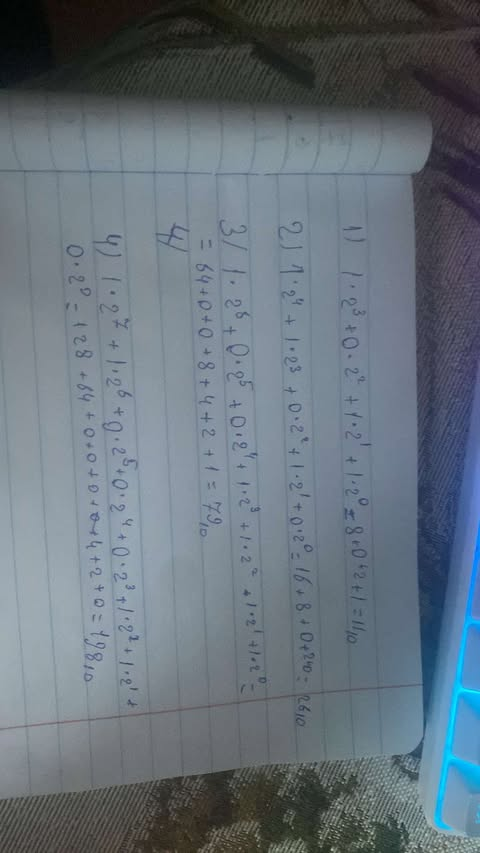 1) 1·2³+0·2²+1·2¹+1·2⁰=8+0+2+1=11₁₀
2) 1·2⁴+1·2³+0·2²+1·2¹+0·2⁰=16+8+0+2+0=26₁₀
3) 1·2⁶+0·2⁵+0·2⁴+1·2³+1·2²+1·2¹+1·2⁰=
=64+0+0+8+4+2+1=79₁₀
4)
4) 1·2⁷+1·2⁶+0·2⁵+0·2⁴+0·2³+1·2²+1·2¹+
0·2⁰=128+64+0+0+0+4+2+0=198₁₀